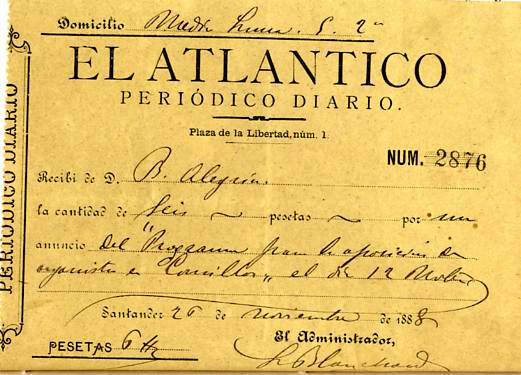 Domicilio Media Luna. 5. 2º
EL ATLANTICO
PERIÓDICO DIARIO.
Plaza de la Libertad, núm. 1.
NUM. 2876
PERIODICO DIARIO
Recibí de D. B. Alegría.
la cantidad de Seis ~ pesetas ~ por un
anuncio del "Programa para la oposición de
organista en Comillas" el día 12
Santander 26 de noviembre de 1888
El Administrador,
PESETAS 6
Blanchard